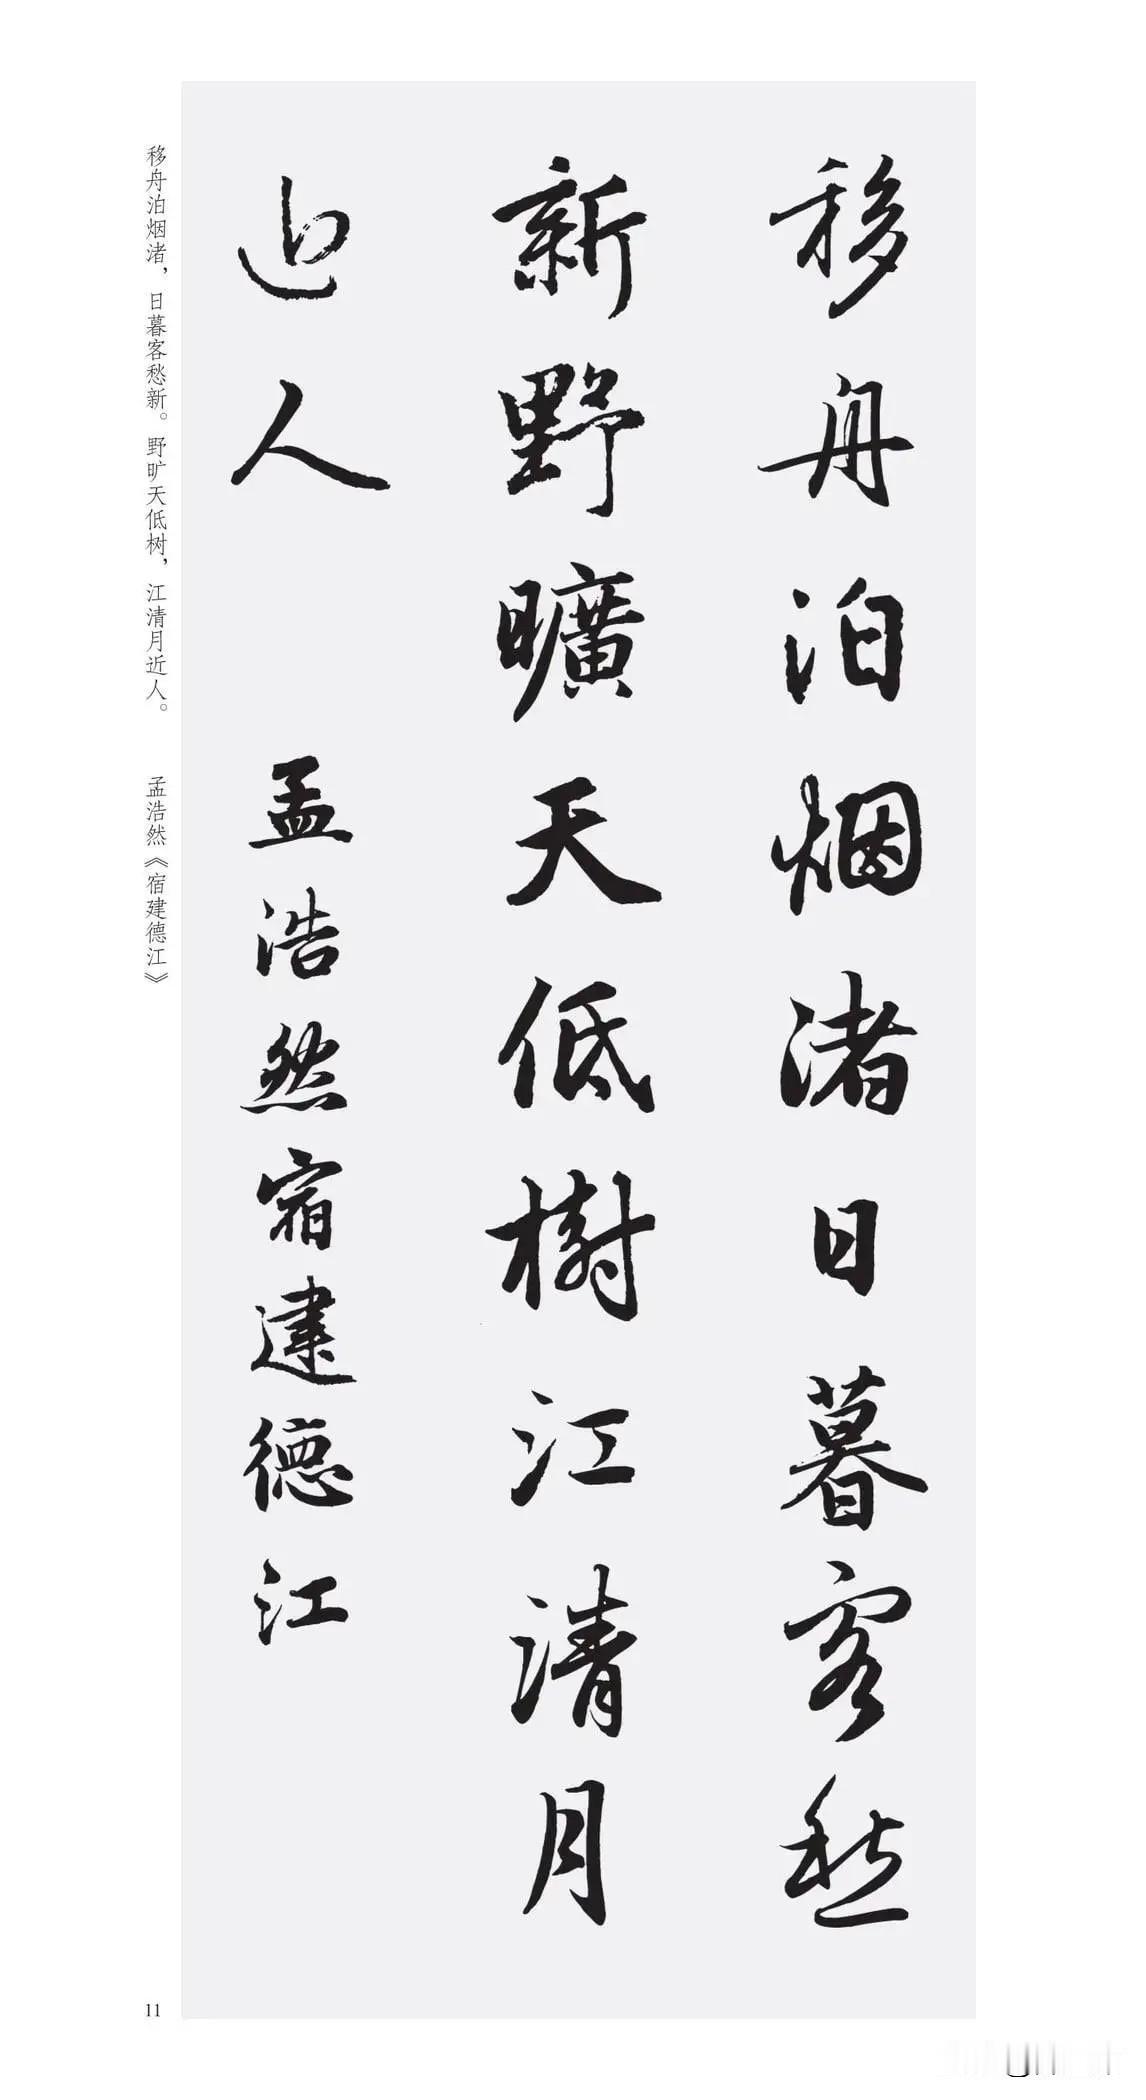 移舟泊烟渚日暮客愁
新野曠天低樹江清月
近人
孟浩然宿建德江
移舟泊烟渚，日暮客愁新。野旷天低树，江清月近人。 孟浩然《宿建德江》
11